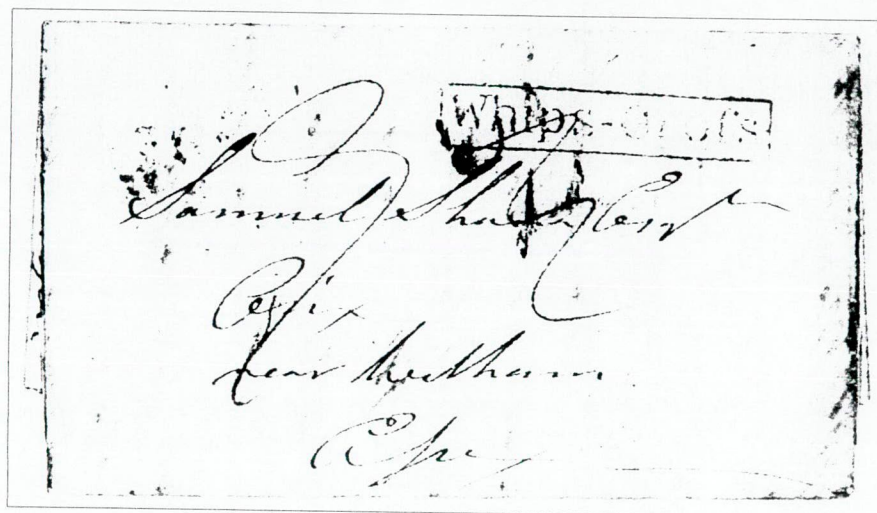 Whips-Cross
Samuel Shaen Esqr
Crix
near Witham
Essex